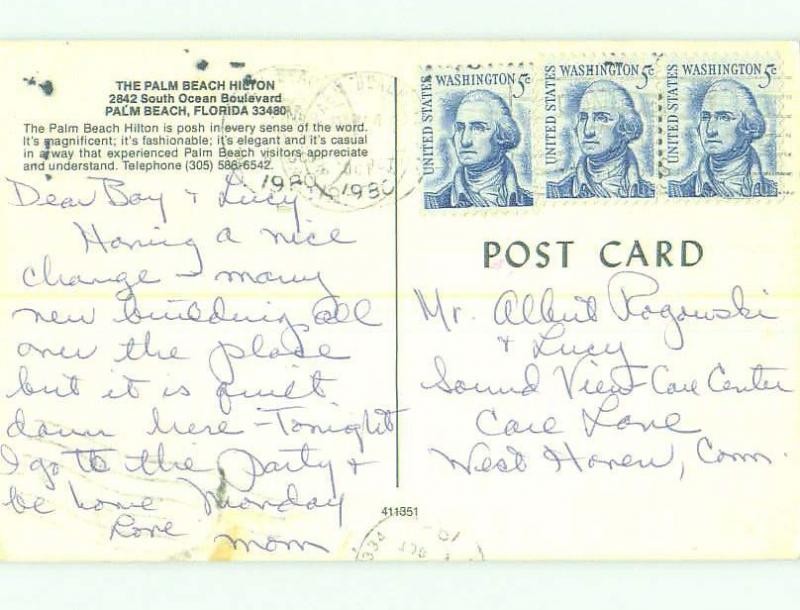 THE PALM BEACH HILTON
2842 South Ocean Boulevard
PALM BEACH, FLORIDA 33480
The Palm Beach Hilton is posh in every sense of the word.
It's magnificent; it's fashionable; it's elegant and it's casual
in a way that experienced Palm Beach visitors appreciate
and understand. Telephone (305) 586-6542.
1980 1980
Dear Boy + Lucy
Having a nice
change - many
new buildings all
over the place
but it is quiet
down here - Tonight
I go to the party +
be home Monday
Love
Mom
UNITED STATES WASHINGTON 5c
UNITED STATES WASHINGTON 5c
UNITED STATES WASHINGTON 5c
POST CARD
Mr. Albert Rogowski
+ Lucy
Sound View Care Center
Care Lane
West Haven, Conn.
411351
334